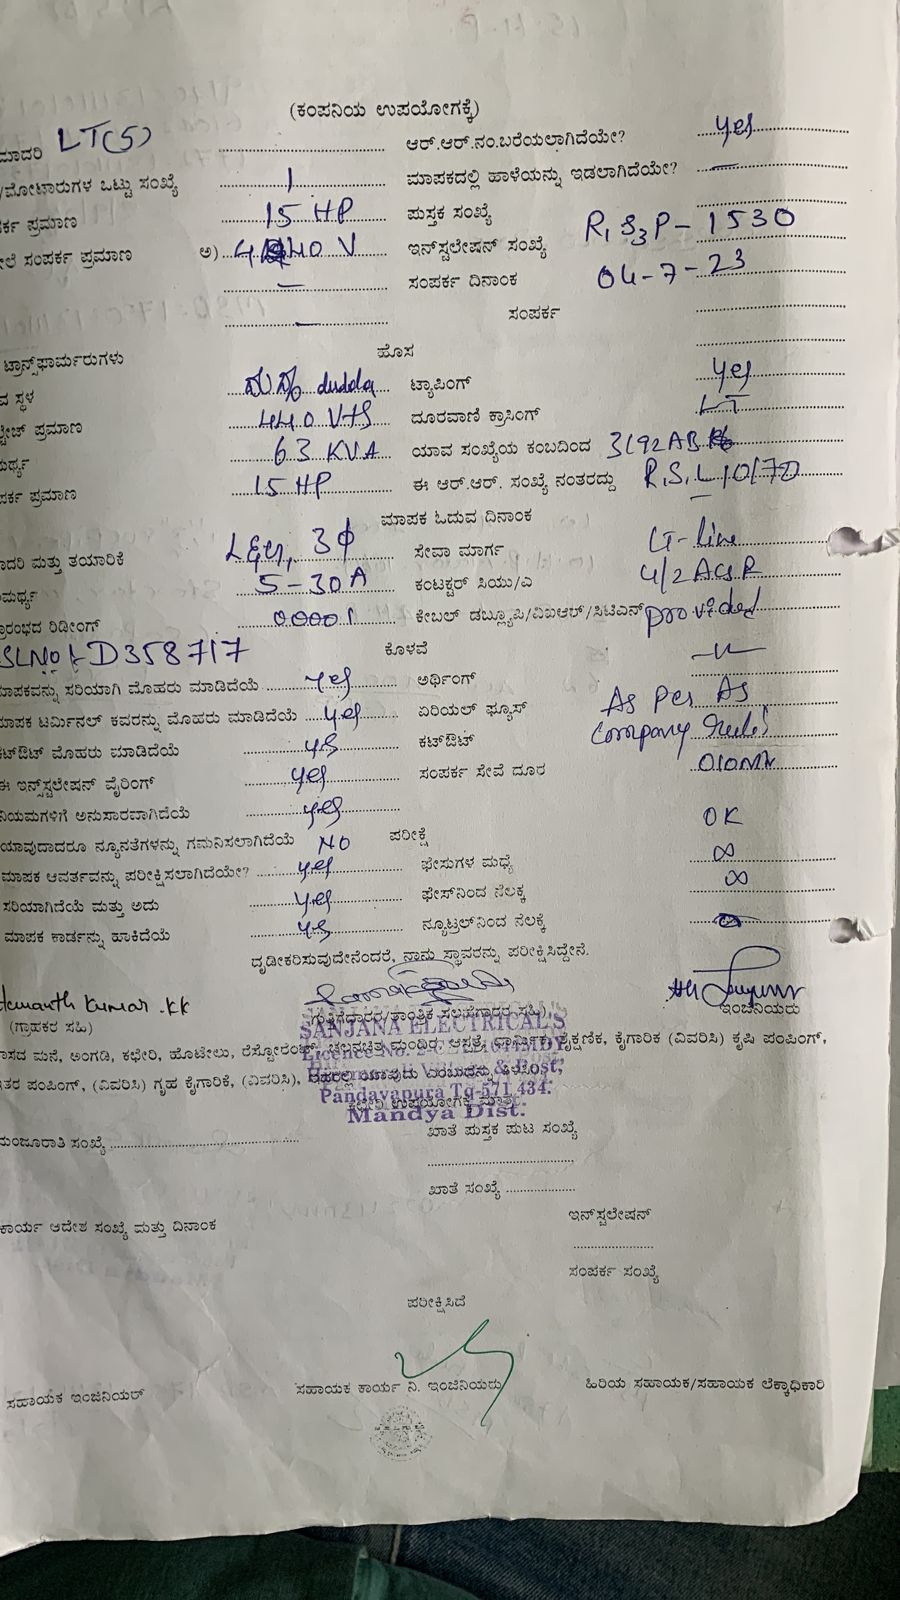 (ಕಂಪನಿಯ ಉಪಯೋಗಕ್ಕೆ)
ಮಾದರಿ LT(5) ಆರ್.ಆರ್.ನಂ.ಬರೆಯಲಾಗಿದೆಯೇ? yes
/ಮೋಟಾರುಗಳ ಒಟ್ಟು ಸಂಖ್ಯೆ 1 ಮಾಪಕದಲ್ಲಿ ಹಾಳೆಯನ್ನು ಇಡಲಾಗಿದೆಯೇ? —
ರ್ಕ ಪ್ರಮಾಣ 15 HP ಪುಸ್ತಕ ಸಂಖ್ಯೆ
ಲೆ ಸಂಪರ್ಕ ಪ್ರಮಾಣ ಅ) 440 V ಇನ್‌ಸ್ಟಲೇಷನ್ ಸಂಖ್ಯೆ R, S3P-1530
— ಸಂಪರ್ಕ ದಿನಾಂಕ 04-7-23
— ಸಂಪರ್ಕ
ಟ್ರಾನ್ಸ್‌ಫಾರ್ಮರುಗಳು ಹೊಸ
ವ ಸ್ಥಳ dudda ಟ್ಯಾಪಿಂಗ್ yes
ಪ್ರಮಾಣ 440 Vts ದೂರವಾಣಿ ಕ್ರಾಸಿಂಗ್ LT
63 KVA ಯಾವ ಸಂಖ್ಯೆಯ ಕಂಬದಿಂದ 3/92AB
ರ್ಕ ಪ್ರಮಾಣ 15 HP ಈ ಆರ್.ಆರ್. ಸಂಖ್ಯೆ ನಂತರದ್ದು R.S.L10/70
ಮಾಪಕ ಓದುವ ದಿನಾಂಕ —
ಾದರಿ ಮತ್ತು ತಯಾರಿಕೆ 3φ ಸೇವಾ ಮಾರ್ಗ LT-line
ಮರ್ಥ್ಯ 5-30A ಕಂಟಕ್ಟರ್ ಸಿಯು/ಎ 4/2 ACSR
ಾರಂಭದ ರಿಡೀಂಗ್ 00001 ಕೇಬಲ್ ಡಬ್ಲ್ಯೂಪಿ/ವಿಐಆರ್/ಸಿಟಿಎಸ್ provided
SLNo LD358717 ಕೊಳವೆ —"—
ಮಾಪಕವನ್ನು ಸರಿಯಾಗಿ ಮೊಹರು ಮಾಡಿದೆಯೆ yes ಅರ್ಥಿಂಗ್
ಮಾಪಕ ಟರ್ಮಿನಲ್ ಕವರನ್ನು ಮೊಹರು ಮಾಡಿದೆಯೆ yes ಏರಿಯಲ್ ಫ್ಯೂಸ್ As Per As
ಕಟ್‌ಔಟ್ ಮೊಹರು ಮಾಡಿದೆಯೆ yes ಕಟ್‌ಔಟ್ Company Rules
ಈ ಇನ್ಸ್‌ಸ್ಟಲೇಷನ್ ವೈರಿಂಗ್ yes ಸಂಪರ್ಕ ಸೇವೆ ದೂರ 010Mtr
ನಿಯಮಗಳಿಗೆ ಅನುಸಾರವಾಗಿದೆಯೆ yes
ಯಾವುದಾದರೂ ನ್ಯೂನತೆಗಳನ್ನು ಗಮನಿಸಲಾಗಿದೆಯೆ NO ಪರೀಕ್ಷೆ OK
ಮಾಪಕ ಆವರ್ತವನ್ನು ಪರೀಕ್ಷಿಸಲಾಗಿದೆಯೇ? yes ಫೇಸುಗಳ ಮಧ್ಯೆ ∞
ಸರಿಯಾಗಿದೆಯೆ ಮತ್ತು ಅದು yes ಫೇಸ್‌ನಿಂದ ನೆಲಕ್ಕೆ ∞
ಮಾಪಕ ಕಾರ್ಡನ್ನು ಹಾಕಿದೆಯೆ yes ನ್ಯೂಟ್ರಲ್‌ನಿಂದ ನೆಲಕ್ಕೆ
ದೃಡೀಕರಿಸುವುದೇನೆಂದರೆ, ನಾನು ಸ್ಥಾವರನ್ನು ಪರೀಕ್ಷಿಸಿದ್ದೇನೆ.
Hemanth Kumar .KK
(ಗ್ರಾಹಕರ ಸಹಿ) ಗುತ್ತಿಗೆದಾರರ/ತಾಂತ್ರಿಕ ಸಲಹೆಗಾರರ ಸಹಿ) ಇಂಜಿನಿಯರು
SANJANA ELECTRICAL'S
Licence No.
& Post,
Pandavapura Tq-571 434.
Mandya Dist.
ಾಸದ ಮನೆ, ಅಂಗಡಿ, ಕಛೇರಿ, ಹೊಟೇಲು, ರೆಸ್ಟೋರೆಂಟ್, ಚಲನಚಿತ್ರ ಮಂದಿರ, ಆಸ್ಪತ್ರೆ, ಧಾರ್ಮಿಕ, ಶೈಕ್ಷಣಿಕ, ಕೈಗಾರಿಕ (ವಿವರಿಸಿ) ಕೃಷಿ ಪಂಪಿಂಗ್,
ಇತರ ಪಂಪಿಂಗ್, (ವಿವರಿಸಿ) ಗೃಹ ಕೈಗಾರಿಕೆ, (ವಿವರಿಸಿ), ಇದರಲ್ಲಿ ಯಾವುದು ಎಂಬುದನ್ನು ತಿಳಿಸಿರಿ
ಕಛೇರಿ ಉಪಯೋಗಕ್ಕೆ ಮಾತ್ರ
ಮಂಜೂರಾತಿ ಸಂಖ್ಯೆ ಖಾತೆ ಪುಸ್ತಕ ಪುಟ ಸಂಖ್ಯೆ
ಖಾತೆ ಸಂಖ್ಯೆ
ಕಾರ್ಯ ಆದೇಶ ಸಂಖ್ಯೆ ಮತ್ತು ದಿನಾಂಕ ಇನ್‌ಸ್ಟಲೇಷನ್
ಸಂಪರ್ಕ ಸಂಖ್ಯೆ
ಪರೀಕ್ಷಿಸಿದೆ
ಸಹಾಯಕ ಇಂಜಿನಿಯರ್ ಸಹಾಯಕ ಕಾರ್ಯ ನಿ. ಇಂಜಿನಿಯರು ಹಿರಿಯ ಸಹಾಯಕ/ಸಹಾಯಕ ಲೆಕ್ಕಾಧಿಕಾರಿ